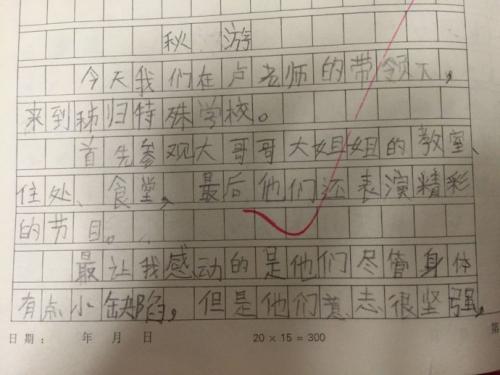 秋游
今天我们在卢老师的带领下，
来到秭归特殊学校。
首先参观大哥哥大姐姐的教室、
住处、食堂，最后他们还表演精彩
的节目。
最让我感动的是他们尽管身体
有点小缺陷，但是他们意志很坚强，
日期： 年 月 日 20×15=300 第